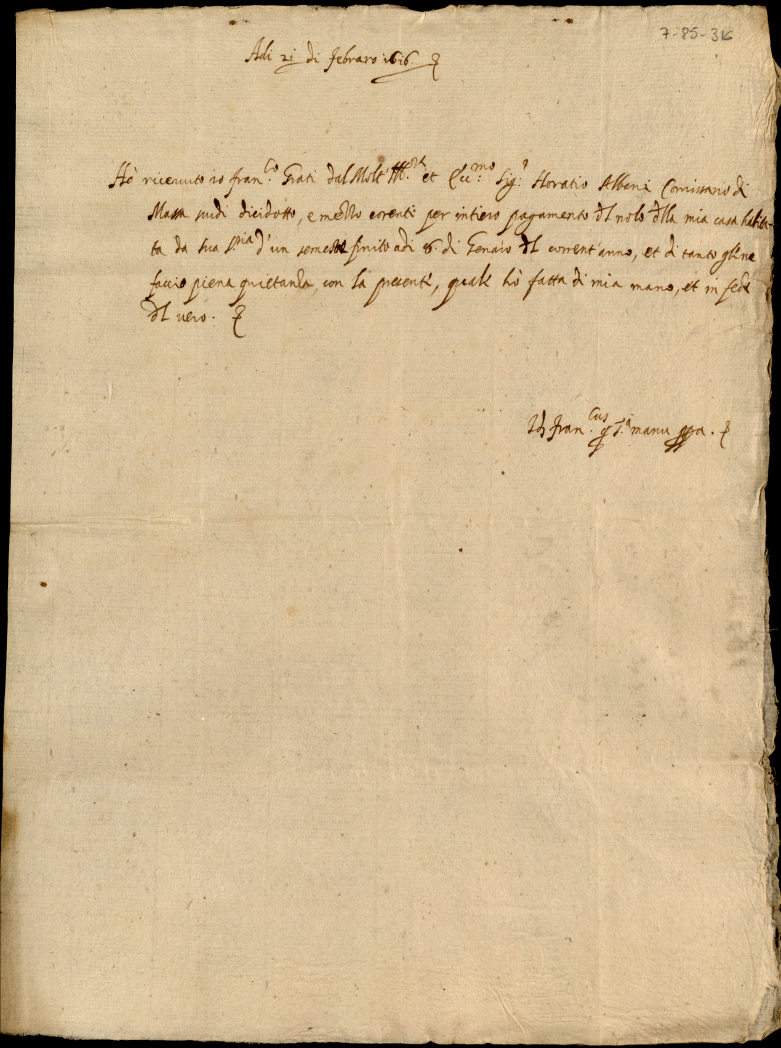 7-85-316
Adi 21 di febraro 1616.
Hò riceuuto io fran.co Grati dal Molt' Ill.re et Ecc.mo Sig.r Horatio Albani Comissario di
Massa scudi dicidotto, e mezzo corenti per intiero pagamento del nolo della mia casa habita-
ta da sua s.ria d'un semestre finito adi 8. di Genaio del corrent' anno, et di tanto gliene
faccio piena quietanza, con la presente, quale hò fatta di mia mano, et in fede
del vero.
Id. fran.cus manu ppa.